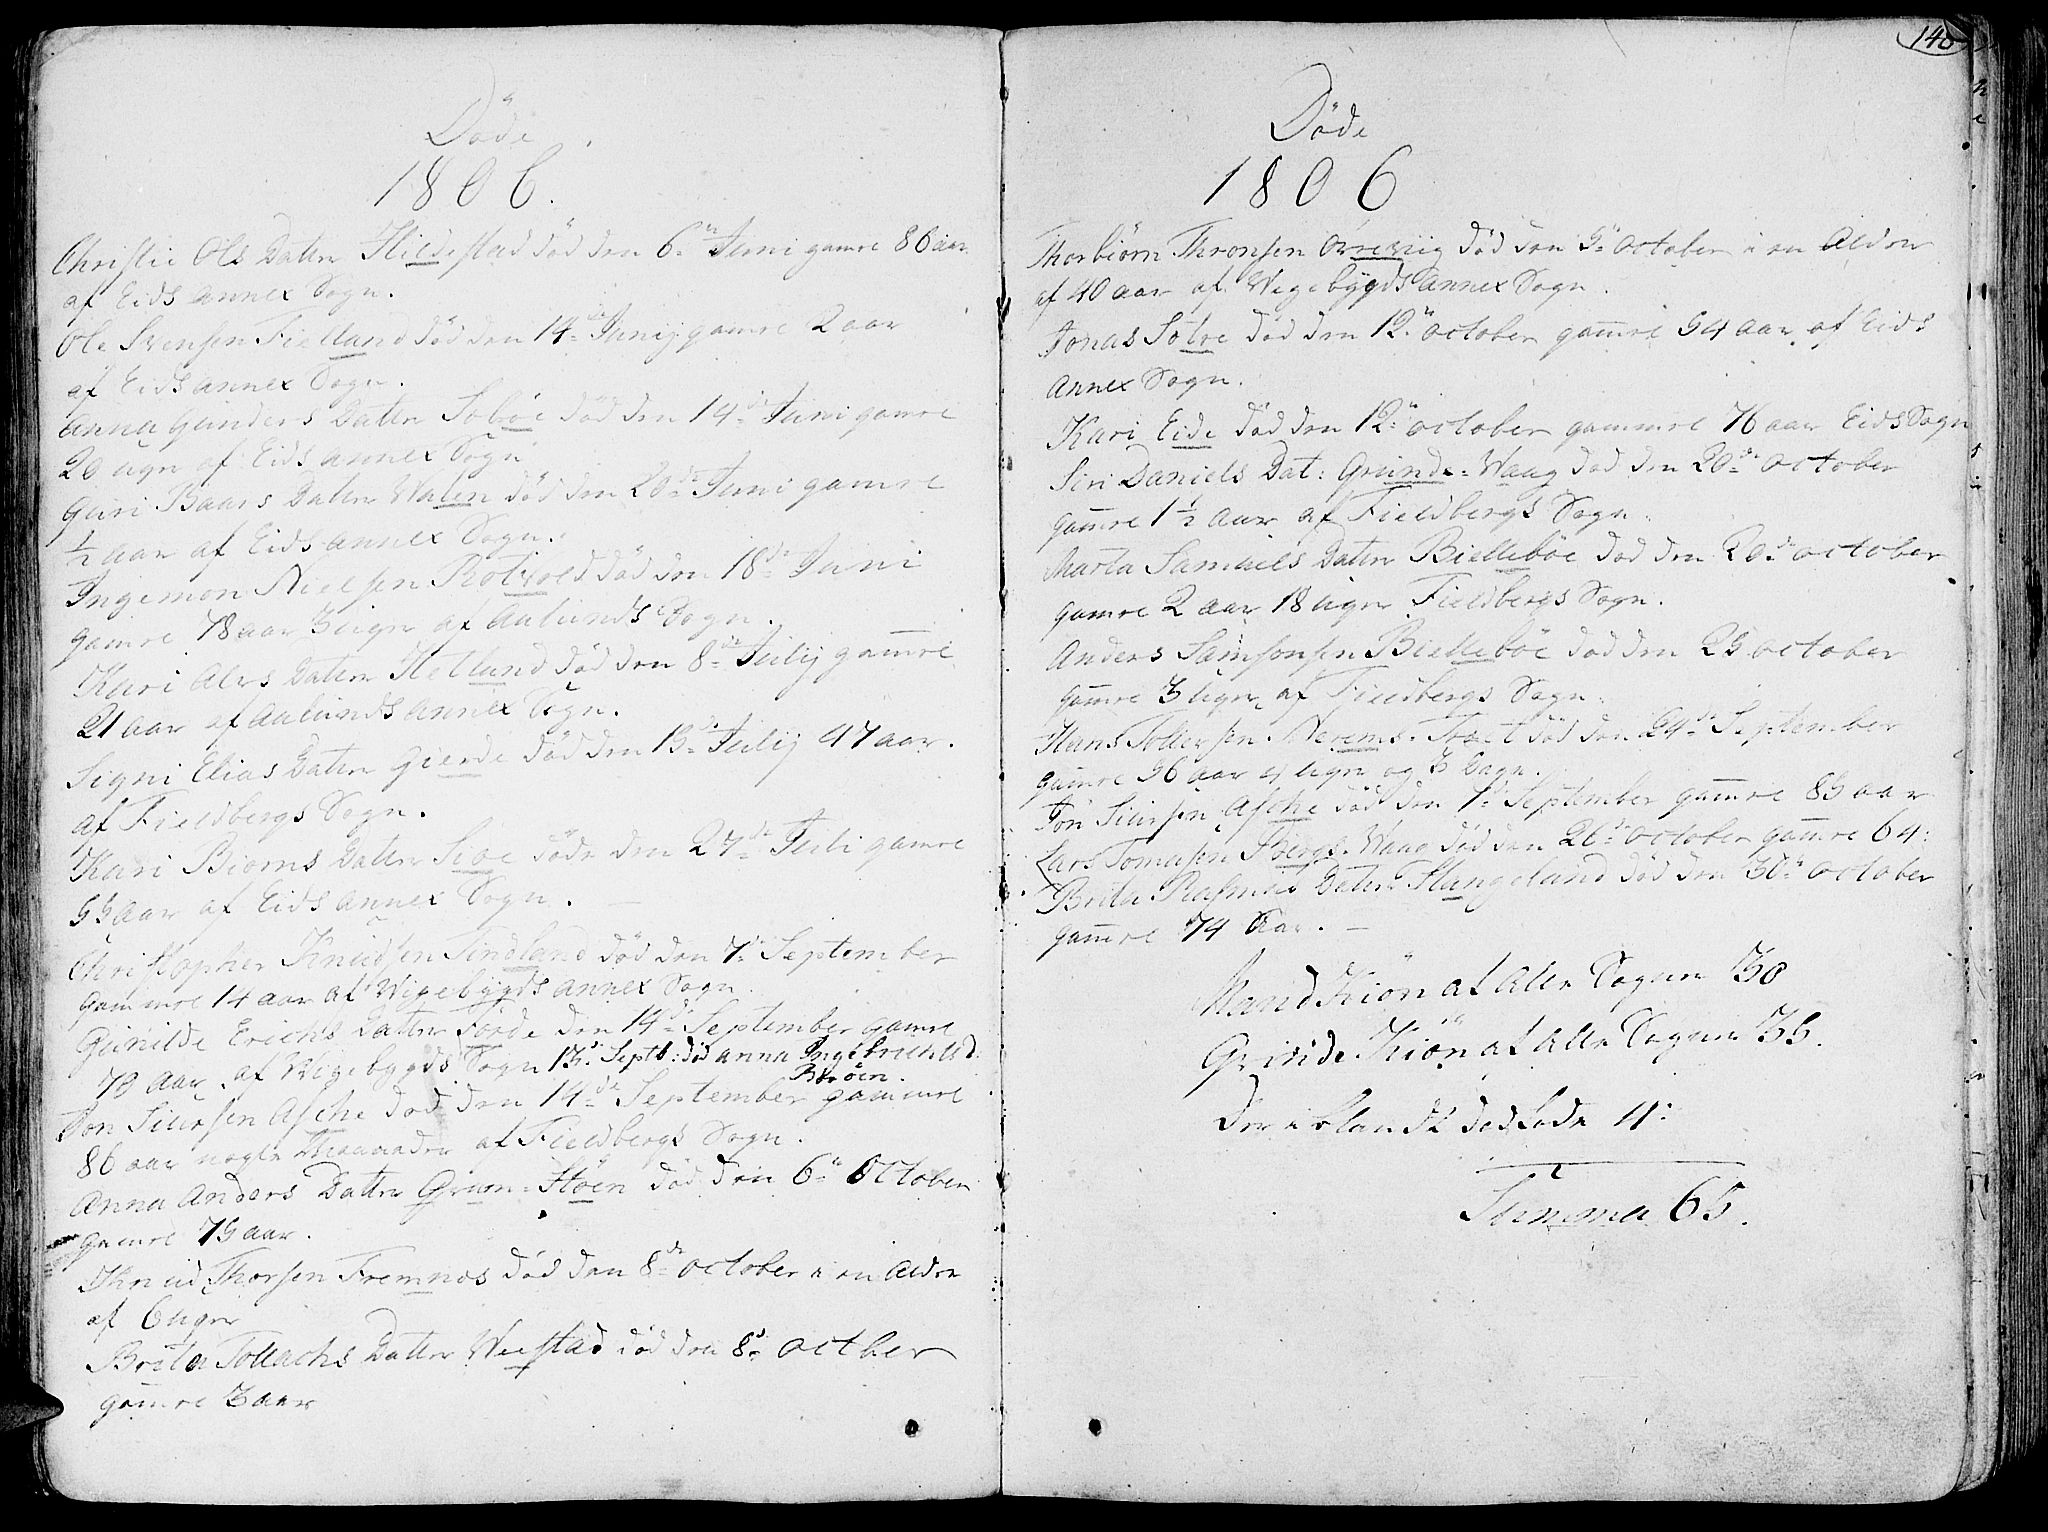 Döde
1806.
Christie Ols Datter Hildestad död den 6te Juni gamre 86 aar
af Eids annex Sogn.
Ole Svensen Fielland död den 14de Junij gamre 2 aar
af Eids annex Sogn.
Anna Gunders Datter Soböe död den 14de Juni gamre
20 ugr af Eids annex Sogn
Guri Baars Datter Walen död den 20de Juni gamre
1/2 aar af Eids annex Sogn.
Ingemon Nielsen Rotvold död den 18de Juni
gamre 78 aar 3 ugr af Aalunds Sogn.
Kari Ales Datter Hetland död den 8de Julij gamre
21 aar af Aalunds annex Sogn.
Signi Elias Datter Gierde död den 13de Julij 47 aar.
af Fieldbergs Sogn.
Kari Biorns Datter Sioe döde den 27de Juli gamre
55 aar af Eids annex Sogn.
Christopher Knudsen Tindland död den 7de September
gammre 14 aar af Wigebygds annex Sogn.
Gunilde Erichs Datter Förde den 14de September gamre
79 aar af Wigebygds Sogn 13de Septb: död anna Ingebrichts d:
Broen.
Jon Siursen Asche död den 14de September gammre
86 aar nogle Maaneder af Fieldbergs Sogn.
Anna Anders Datter Grim-Stöen död den 6te October
gamre 75 aar.
Knud Thorsen Fremnes död den 8de October i en Alder
af 6 ugr
Brita Tollachs Datter Weestad död den 8de octber
gamre 3 aar
140
Döde
1806
Thorbiörn Thronsen Övreviig död den 9de October i en Alder
af 40 aar af Wigebygds annex Sogn.
Jonas Solve död den 12te October gamre 54 aar af Eids
Annex Sogn.
Kari Eide död den 12te October gammre 76 aar Eids Sogn
Siri Daniels Dat: Grunde-Waag död den 20de October
gamre 1 1/2 aar af Fieldbergs Sogn.
Marta Samuels Datter Bielleböe död den 20de October
gamre 2 aar 18 ugr Fieldbergs Sogn.
Anders Samsonsen Bielleböe död den 25 October
gamre 3 ugr af Fieldbergs Sogn.
Hans Tollefsen Nerems-Toet död den 24de September
gamre 56 aar 4 ugr og 3 Dage.
Jon Siursen Asche död den 1de September gamre 85 aar
Lars Tomasen Bergs-Waag död den 26de October gamre 64:
Brita Rasmus Datter Stangeland död den 30te October
gamre 74 Aar.
Mand Kiön af Alle Sogne 30
Qvinde Kiön af Alle Sogne 35.
Der iblandt död föde 11:
Summa 65.